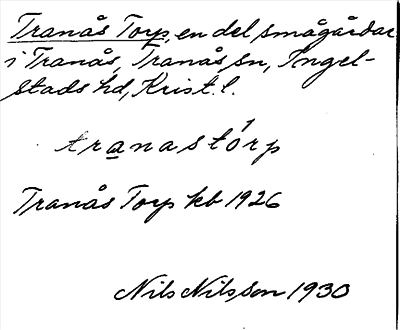 Tranås Torp, en del smågårdar
i Tranås, Tranås sn, Ingel-
stads hd, Krist. l.
tranastórp
Tranås Torp kb 1926
Nils Nilsson 1930